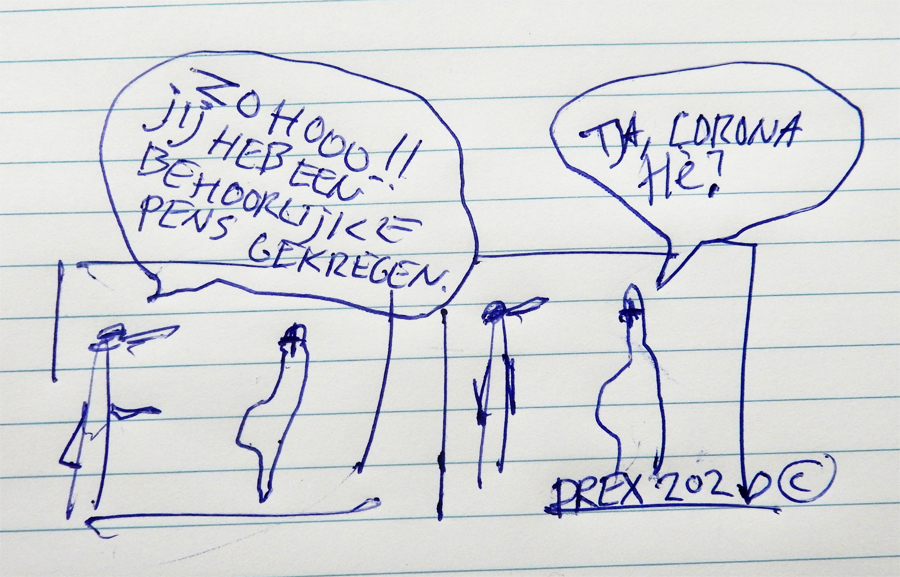 ZO HOOO!!
JIJ HEB EEN
BEHOORLIJKE
PENS GEKREGEN.
TJA, CORONA
Hè?
DREX 2020 ©